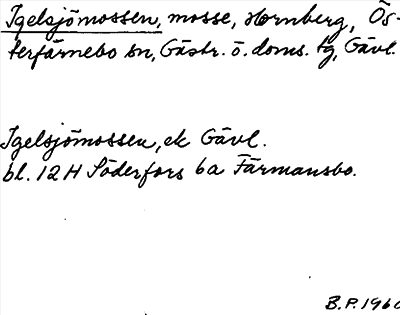 Igelsjömossen, mosse, Hornberg, Ös-
terfärnebo sn, Gästr. ö. doms. tg, Gävl.
Igelsjömossen, ek Gävl.
bl. 12 H Söderfors 6a Färmansbo.
B.P. 1960